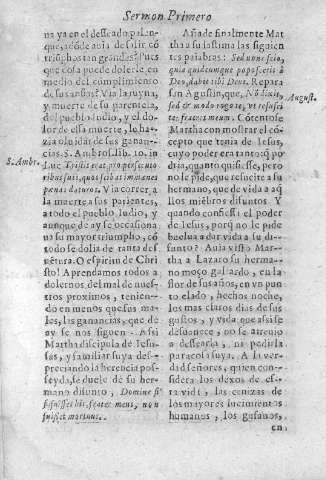 Sermon Primero
na ya en el desseado palen-
que, adõde auia de salir cõ
triũphos tan grandes? Pues
que cosa puede dolerle en
medio del cumplimiento
de sus ansias? Via la ruyna,
y muerte de su parentela,
del pueblo Iudio, y el do-
lor de essa muerte, le ha-
zia oluidar de sus ganan-
cias. S. Ambros. lib. 10. in
S. Ambr.
Luc. Tristis erat, pro persecuto-
ribus suis, quos scibat immanes
pœnas daturos. Via correr a
la muerte a sus parientes,
a todo el pueblo Iudio, y
aunque de ay se occasiona
ua su mayor triumpho, cõ
todo se dolia de tanta des
vẽtura. O espiritu de Chri
sto! Aprendamos todos a
dolernos del mal de nues-
tros proximos, tenien-
do en menos que sus ma-
les, las ganancias, que de
ay se nos siguen. Assi
Martha discipula de Iesu-
sas, y familiar suya des-
preciando la herencia pos-
seyda, se duele de su her-
mano difunto, Domine si
fuisses hic, frater meus, non
fuisset mortuus.
Añade finalmente Mar
tha a su lastima las siguien
tes palabras: Sed nunc scio,
quia quæcunque poposceris à
Deo, dabit tibi Deus. Repara
San Agustin, que, Nõ dixit,
August.
sed & modo rogo te, vt resusci
tes fratrem meum. Cõtentose
Martha con mostrar el cõ-
cepto que tenia de Iesus,
cuyo poder era tanto: q̃ po
dria, quanto quisiesse, pero
no le pide, que resucite a su
hermano, que de vida a aq̃
llos miẽbros difuntos. Y
quando confiessa el poder
de Iesus, porq̃ no le pide
buelua a dar vida a su di-
funto? Auia visto Mar-
tha a Lazaro su herma-
no moço gallardo, en la
flor de sus años, en vn pun
to elado, hechos noche,
los mas claros dias de sus
gustos, y vida que assi se
desuanece, no se atreuio
a dessearla, ni pedirla
para cosa suya. A la ver-
dad señores, quien con-
sidera los dexos de es-
ta vida, las cenizas de
los mayores lucimientos
humanos, los gusanos,
en